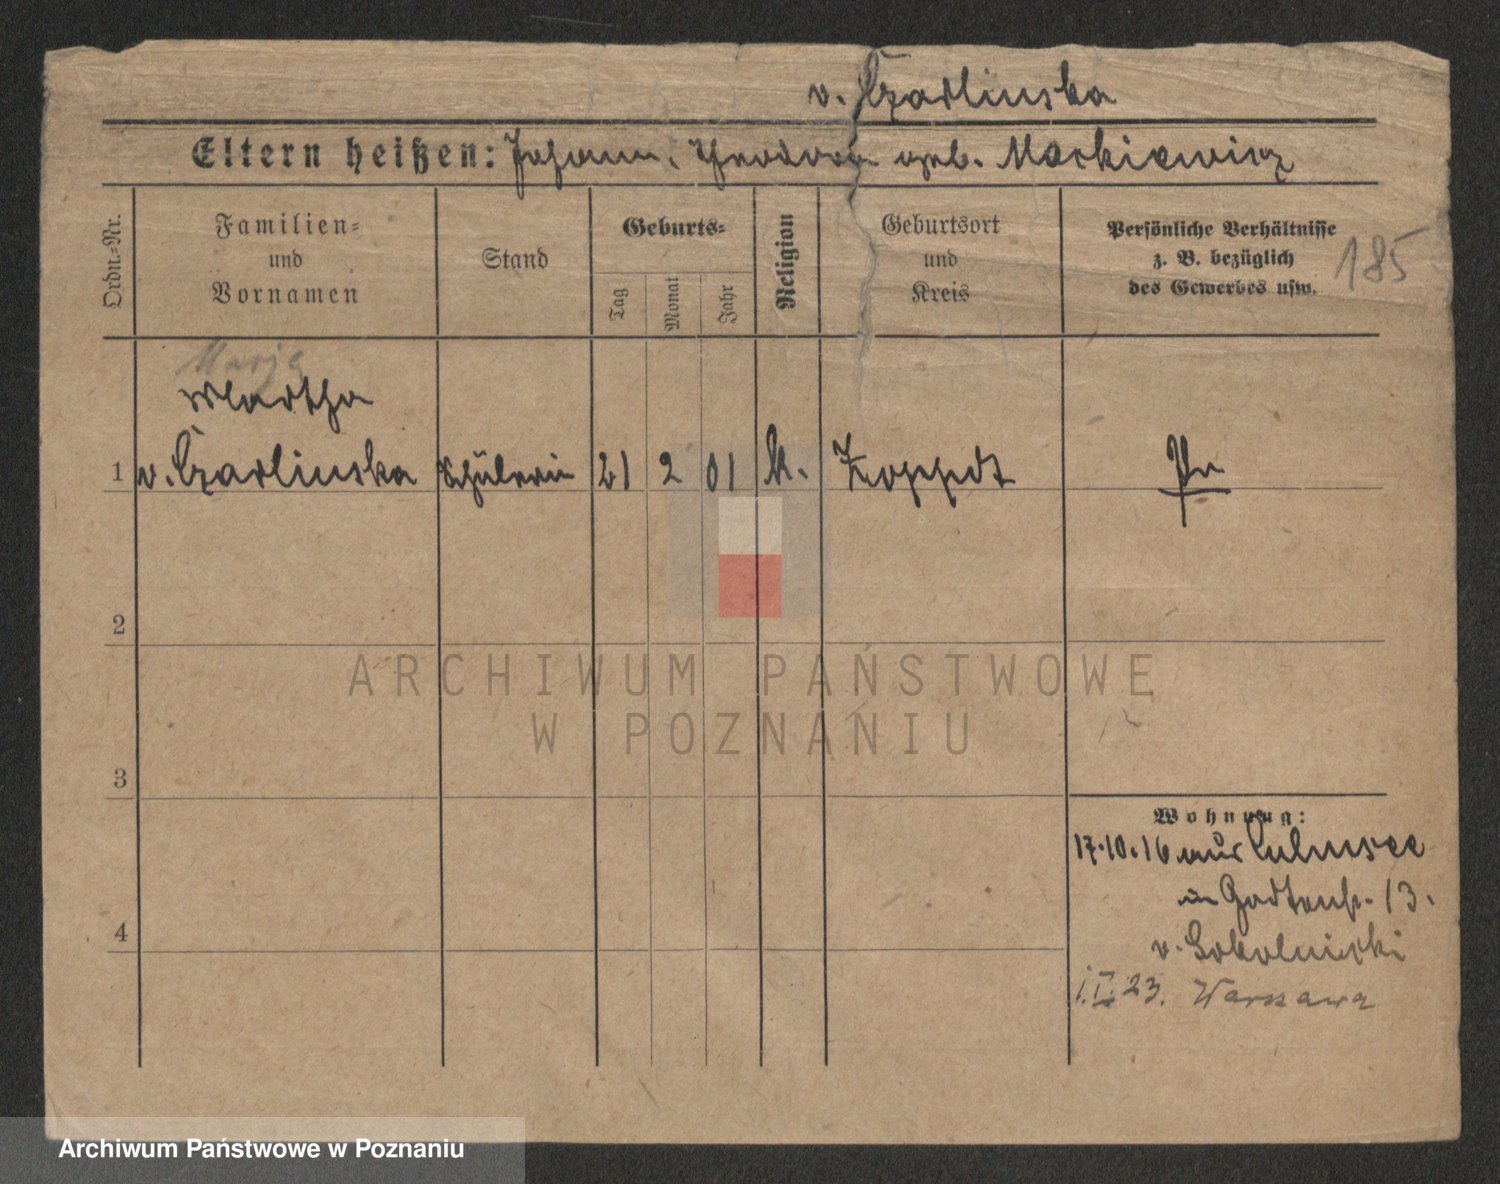 v. Czarlinska
Eltern heißen: Johann, Theodora geb. Markiewicz
Ordn.-Nr.
Familien-
und
Vornamen
Stand
Geburts-
Tag
Monat
Jahr
Religion
Geburtsort
und
Kreis
Persönliche Verhältnisse
z. B. bezüglich
des Gewerbes usw.
185
Marja
Martha
1 v. Czarlinska Schülerin 21 2 01 k. Zoppot Pr
2
3
4
Wohnung:
17.10.16 aus Culmsee
in Gartenstr. 13.
v. Sokolnicki
1.II.23. Warszawa
ARCHIWUM PAŃSTWOWE
W POZNANIU
Archiwum Państwowe w Poznaniu